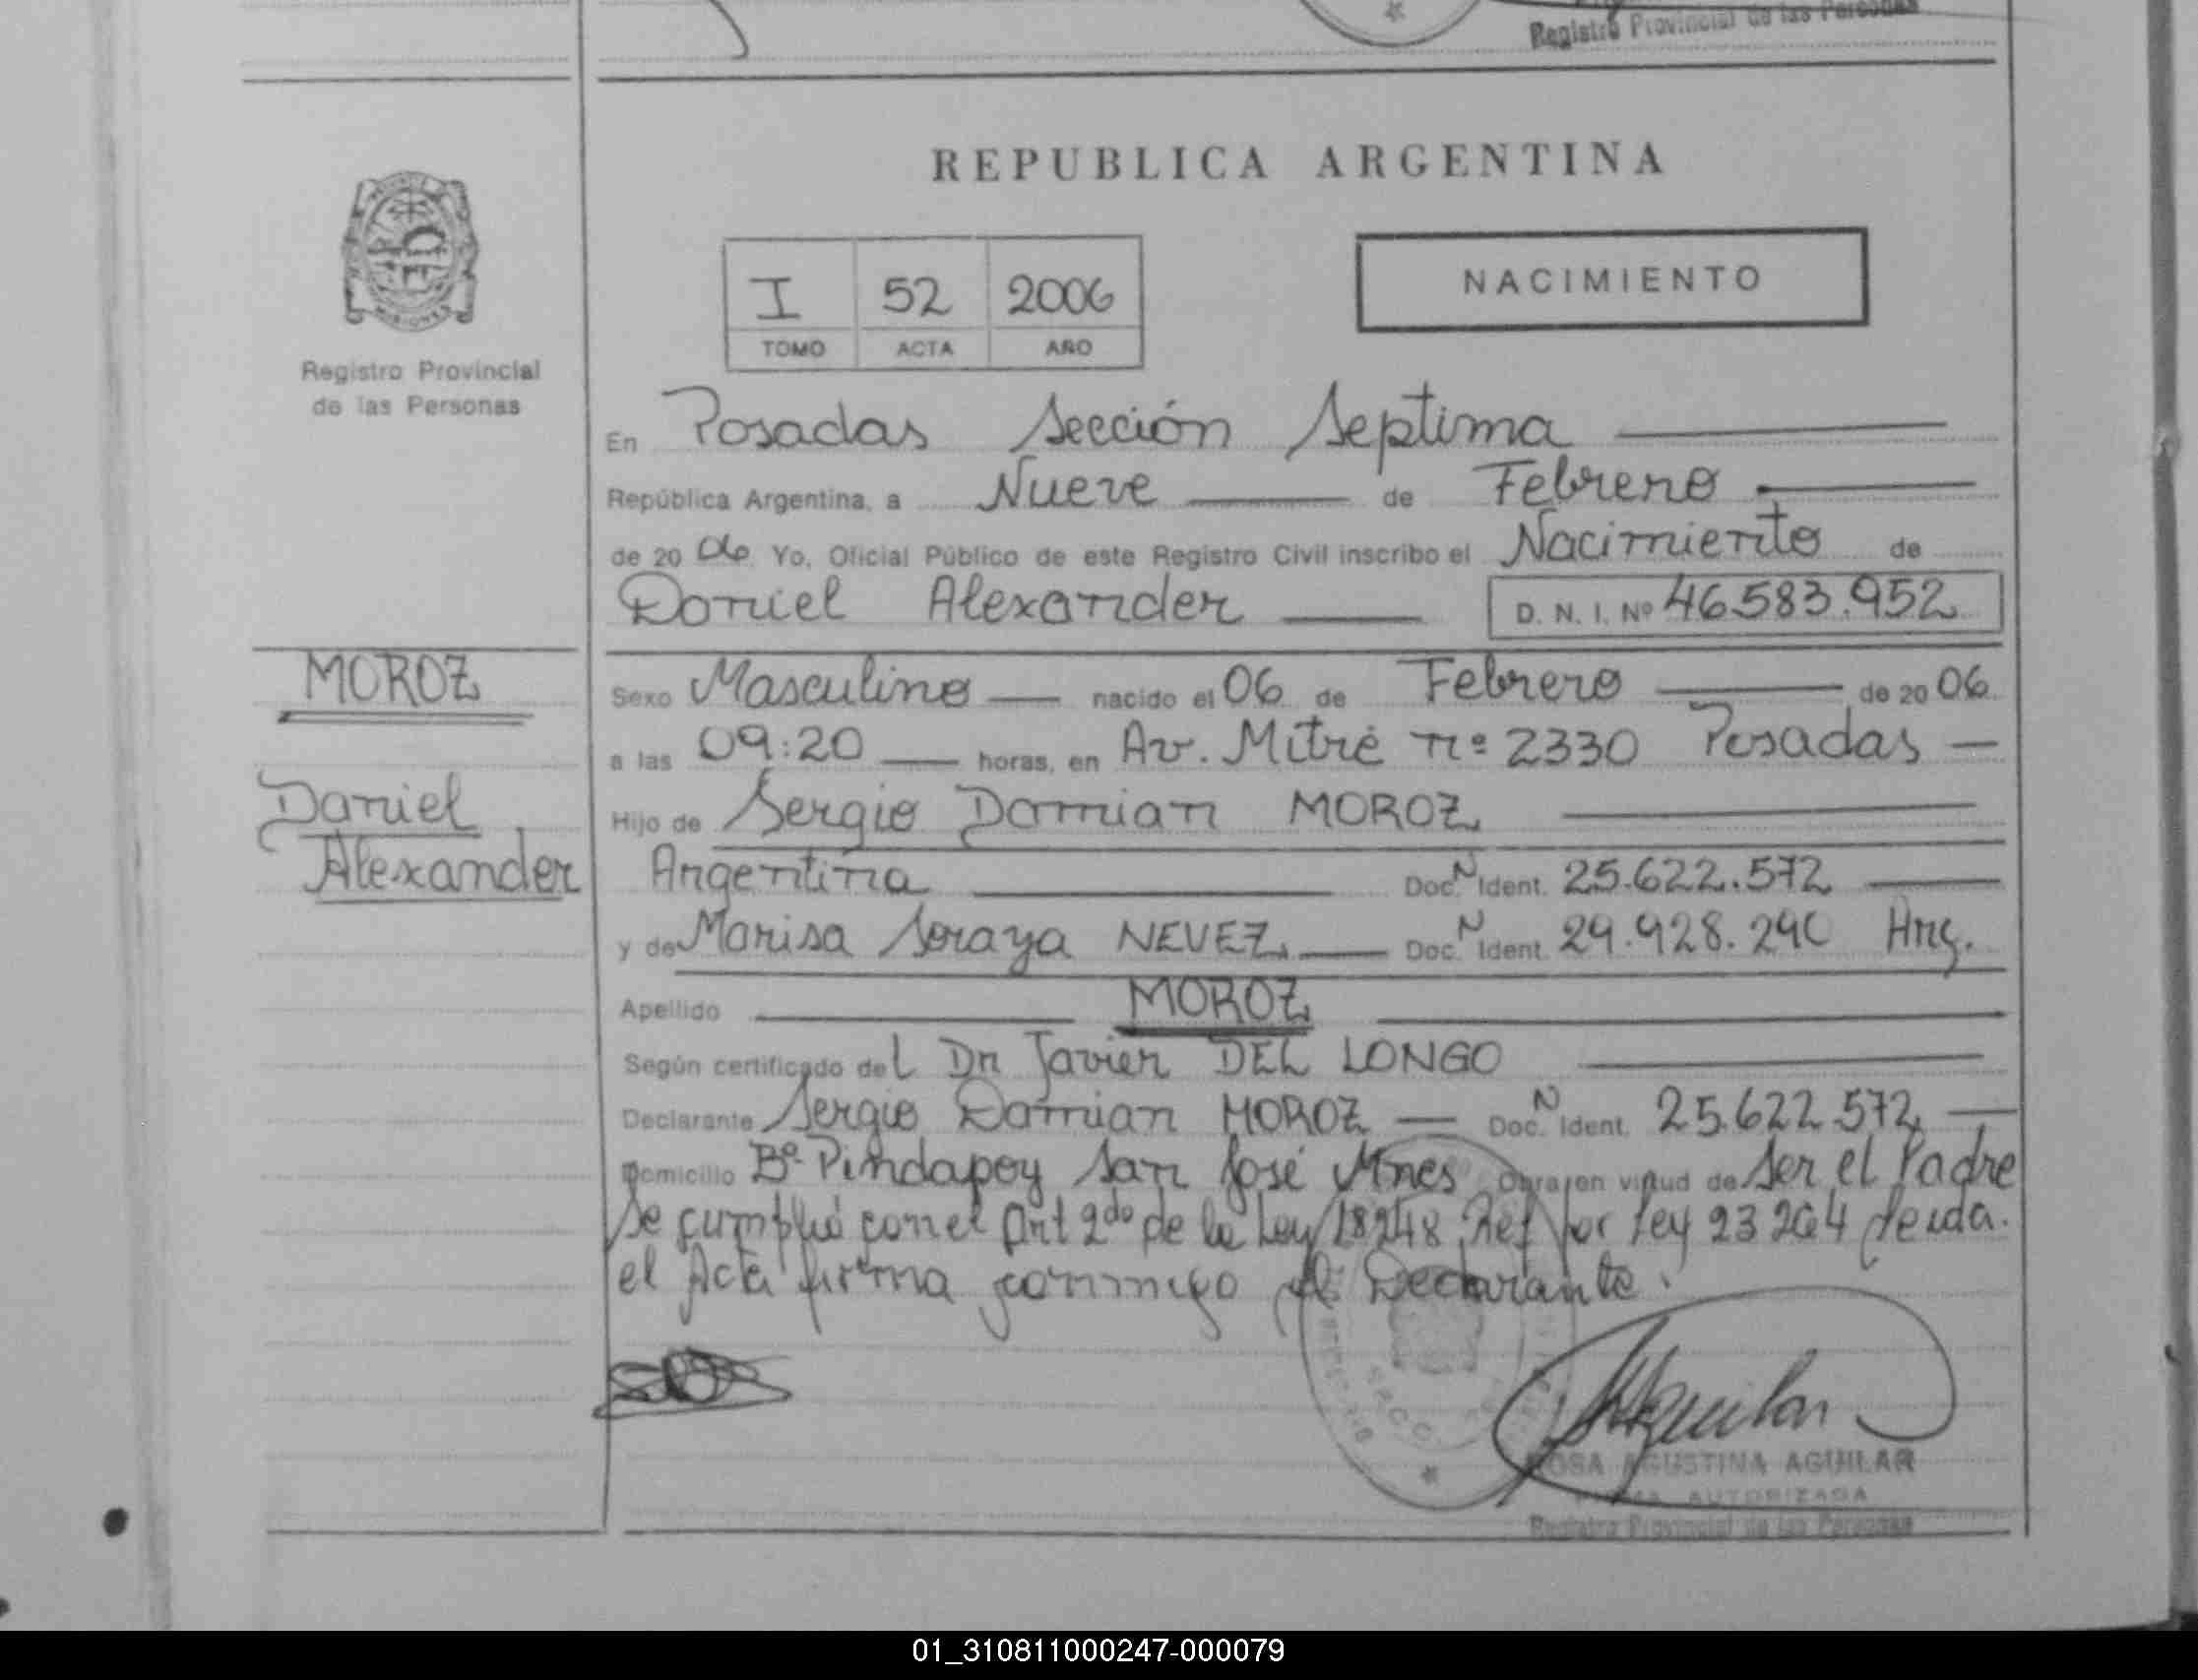 Registro Provincial de las Personas
REPUBLICA ARGENTINA
MISIONES
Registro Provincial
de las Personas
I 52 2006
TOMO ACTA AÑO
NACIMIENTO
En Posadas Sección Septima
República Argentina, a Nueve de Febrero
de 20 06 Yo, Oficial Público de este Registro Civil inscribo el Nacimiento de
Daniel Alexander D. N. I. Nº 46.583.952
MOROZ
Daniel
Alexander
Sexo Masculino nacido el 06 de Febrero de 20 06.
a las 09:20 horas, en Av. Mitre nº 2330 Posadas
Hijo de Sergio Damian MOROZ
Argentina Doc. N Ident. 25.622.572
y de Marisa Soraya NEVEZ Doc. N Ident. 29.928.290 Arg.
Apellido MOROZ
Según certificado del Dr Javier DEL LONGO
Declarante Sergio Damian MOROZ Doc. N Ident. 25.622.572
Domicilio Bº Pindapoy San José Mnes Obra en virtud de Ser el Padre
Se cumplió con el Art 2do de la Ley 18248 Ref por Ley 23264 Leida.
el Acta firma conmigo el Declarante.
Aguilar
ROSA AGUSTINA AGUILAR
FIRMA AUTORIZADA
Registro Provincial de las Personas
01_310811000247-000079